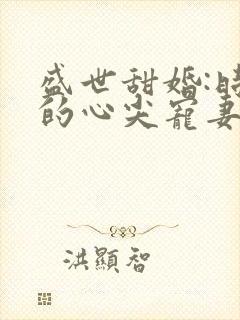 盛世甜婚:時
的心尖寵妻
洪顯智